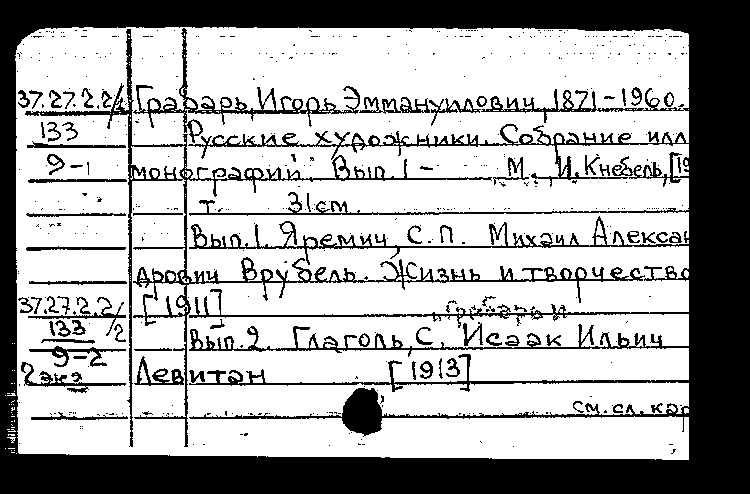 37.27.2.2/1 Грабарь, Игорь Эммануилович, 1871-1960.
133 Русские художники. Собрание илл
9-1 монографий. Вып. 1 - М., И. Кнебель, [19
т. 31 см.
Вып. 1. Яремич, С. П. Михаил Алексан
дрович Врубель. Жизнь и творчество
37.27.2.2/2 [1911] Грабарь И
133 Вып. 2. Глаголь, С. Исаак Ильич
9-2
2 экз Левитан [1913]
см. сл. кар